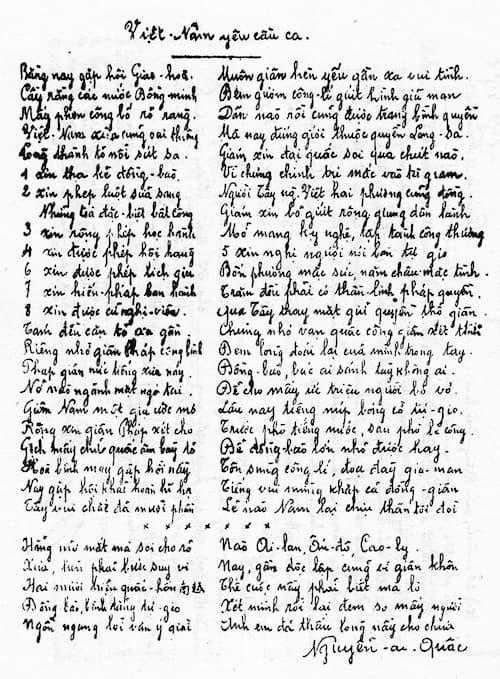 Việt-Nam yêu cầu ca.
Bằng nay gặp hội Giao-hoà, Muôn giân hèn yếu gần xa vui tình.
Cầy rằng các nước Đồng-minh Đem gươm công-lí giứt hình giã man
Mấy phen công bố rõ ràng. Dân nào rồi cũng được trang bình quyền
Việt-Nam xưa cũng oai thiêng Mà nay đứng giưới thuộc quyền Lang-sa.
Lòng thành tỏ nỗi sút sa. Giám xin đại quấc soi qua chút nào.
1 xin tha kẻ đồng-bào. Vì chưng chính trị mắc vào tù giam.
2 xin phép luật sửa sang Người Tây người Việt hai phương cùng đồng.
Những toà đặc-biệt bất công Giám xin bỏ giứt rộng giung dân lành
3 xin rộng phép học hành Mở mang kỹ nghệ, lập thành công thương
4 xin được phép hội hàng 5 xin nghĩ ngợi nói bàn tự gio
6 xin được phép lịch giu Bốn phương mặc sức, năm châu mặc tình.
7 xin hiến-pháp ban hành Trăm đều phải có thần linh pháp quyền.
8 xin được cử nghị-viên. Qua Tây thay mặt giứt quyền thổ giân.
Tám đều cặn tỏ xa gần. Chứng nhờ vạn quấc công giân xét tình
Riêng nhờ giân Pháp công bình Đem lòng đoái lại của mình trong tay.
Pháp giân nức tiếng xưa nay. Đồng-bào, bác ái sánh tày không ai.
Nỡ nào ngảnh mặt ngơ tai. Để cho mấy ức triệu người bơ vơ.
Giân Nam một giạ ước mơ Lâu nay tiếng núp bóng cờ tự-gio.
Rộng xin giân Pháp xét cho Trước phò tiếng nước, sau phò lẽ công.
Gịch mấy chữ quấc âm bày tỏ Để đồng-bào lớn nhỏ được hay.
Hoà bình may gặp hội này Tôn sùng công-lí, đoạ đày gia-man
Nay gặp hội khải hoàn hỉ hạ Tiếng vui mừng khắp cả đồng-giân
Tây vui chắc đã mười phân Lẽ nào Nam lại chịu thân tôi đòi
x x x x x x x
Hẵng mở mắt mà soi cho rõ Nào Ai-lan, Ấn-độ, Cao-ly.
Xưa, hèn phải bước suy vi Nay, gần độc lập cũng vì giân khôn
Hai mươi triệu quấc-hồn Thế cuộc này phải biết mà lo
Đồng bào, bình đẳng tự-gio Xét mình rồi lại đem so mấy người
Ngổn ngang lời vắn ý giài Anh em đã thấu lòng này cho chưa
Nguyễn-ai-Quấc